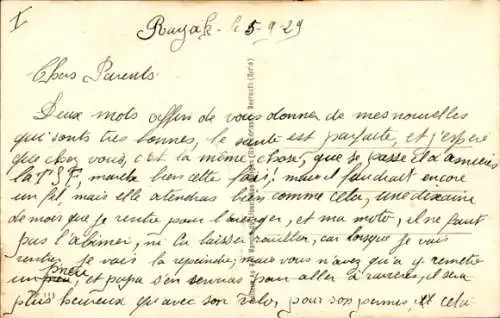 I
Rayak le 5-9-29
Chers Parents
Deux mots affin de vous donner de mes nouvelles
qui sonts très bonnes, le santé est parfaite, et j'espère
que chez vous, c'est la même chose, que se passe il d'
la T.S.F, marche bien cette fois! mais il faudrait encore
un fil, mais elle atendras bien comme cela, une dixaine
de mois que je rentre pour l'arranger, et ma moto, il ne faut
pas l'abimer, ni la laisser rouiller, car lorsque je vais
rentrer je vais la repeindre, mais vous n'avez qu'a y remettre
un pneu, et papa s'en serviras pour aller à, il sera
plus heureux qu'avec son vélo, pour son permis, et cela